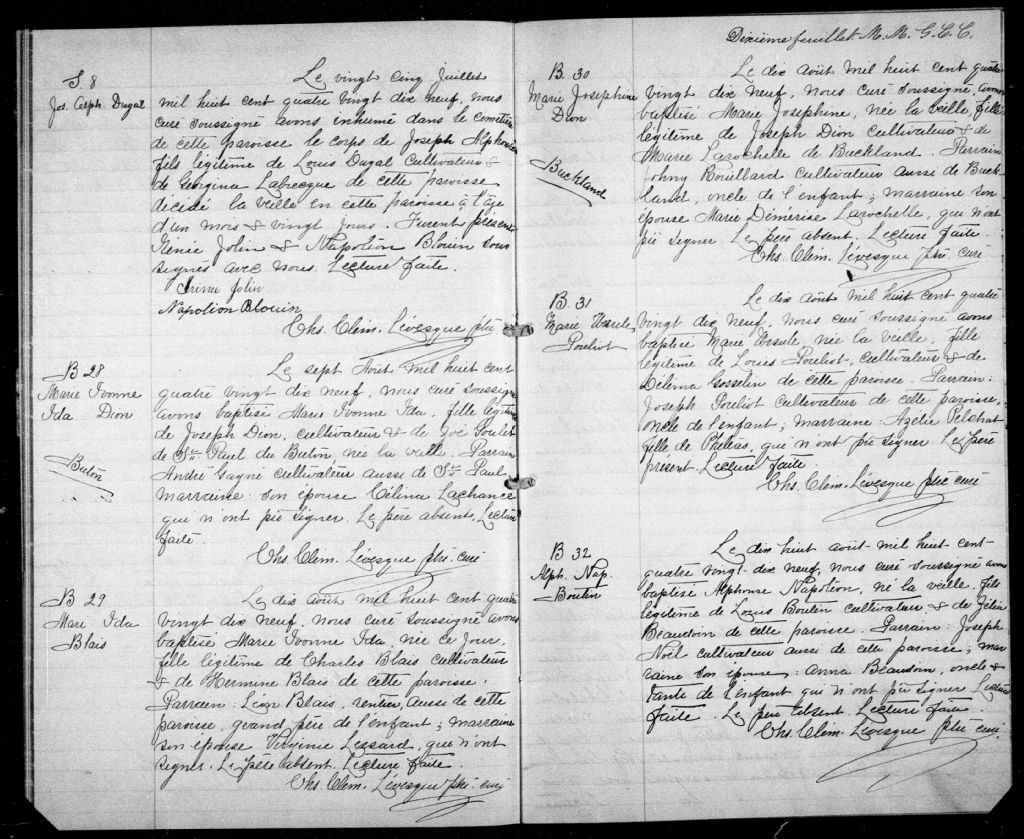 S. 8
Jos. Alph. Dugal
Le vingt cinq Juillet
mil huit cent quatre vingt dix neuf, nous
curé soussigné avons inhumé dans le Cimetière
de cette paroisse le corps de Joseph Alphonse
fils légitime de Louis Dugal Cultivateur &
de Georgina Labrecque de cette paroisse
décédé la veille en cette paroisse à l'âge
d'un mois & vingt jours. Furent présent
Irénée Jolin & Napoléon Blouin sous
signés avec nous. Lecture faite.
Irénée Jolin
Napoléon Blouin
Chs. Clém. Lévesque ptre
B 28
Marie Ivonne
Ida Dion
Buton
Le sept Août mil huit cent
quatre vingt dix neuf, nous curé soussigné
avons baptisé Marie Ivonne Ida, fille légitime
de Joseph Dion, cultivateur & de Zoé Goulet
de St. Paul du Buton, née la veille. Parrain
André Gagné cultivateur aussi de St. Paul
marraine: son épouse Célina Lachance
qui n'ont pû signer. Le père absent, Lecture
faite
Chs. Clém. Lévesque ptre. curé
B 29
Mari Ida
Blais
Le dix août mil huit cent quatre
vingt dix neuf, nous curé soussigné avons
baptisé Marie Ivonne Ida, née ce jour,
fille légitime de Charles Blais cultivateur
& de Hermine Blais de cette paroisse.
Parrain: Léon Blais, rentier, aussi de cette
paroisse, grand père de l'enfant; marraine
son épouse Virginie Lessard, que n'ont
signer. Le père absent. Lecture faite.
Chs. Clém. Lévesque ptre. curé
Dixième feuillet M. M. G. C. C.
B. 30
Marie Josephine
Dion
Buckland
Le dix Août mil huit cent quatre
vingt dix neuf, nous curé soussigné avons
baptisé Marie Josephine, née la veille, fille
légitime de Joseph Dion Cultivateur & de
Marie Larochelle de Buckland. Parrain
Johny Rouillard cultivateur aussi de Buck
land, oncle de l'enfant; marraine son
épouse Marie Démérise Larochelle, qui n'ont
pû signer. Le père absent. Lecture faite.
Chs. Clém. Lévesque ptre curé
B. 31
Marie Ursule
Pouliot
Le dix Août mil huit cent quatre
vingt dix neuf, nous curé soussigné avons
baptisé Marie Ursule née la veille, fille
légitime de Louis Pouliot, cultivateur & de
Délima Gosselin de cette paroisse. Parrain:
Joseph Pouliot cultivateur de cette paroisse,
oncle de l'enfant; marraine: Azélie Pelchat
fille de Philéas, qui n'ont pû signer. Le père
présent. Lecture faite
Chs. Clém. Lévesque ptre curé
B 32
Alph. Nap.
Boutin
Le dix huit août mil huit cent
quatre vingt dix neuf, nous curé soussigné avons
baptisé Alphonse Napoléon, né la veille, fils
légitime de Louis Boutin cultivateur & de Félix
Beaudoin de cette paroisse. Parrain: Joseph
Noël cultivateur aussi de cette paroisse; mar
raine son épouse: Anna Beaudoin, oncle &
tante de l'enfant qui n'ont pû signer Lecture
faite. Le père absent. Lecture faite.
Chs. Clém. Lévesque ptre curé